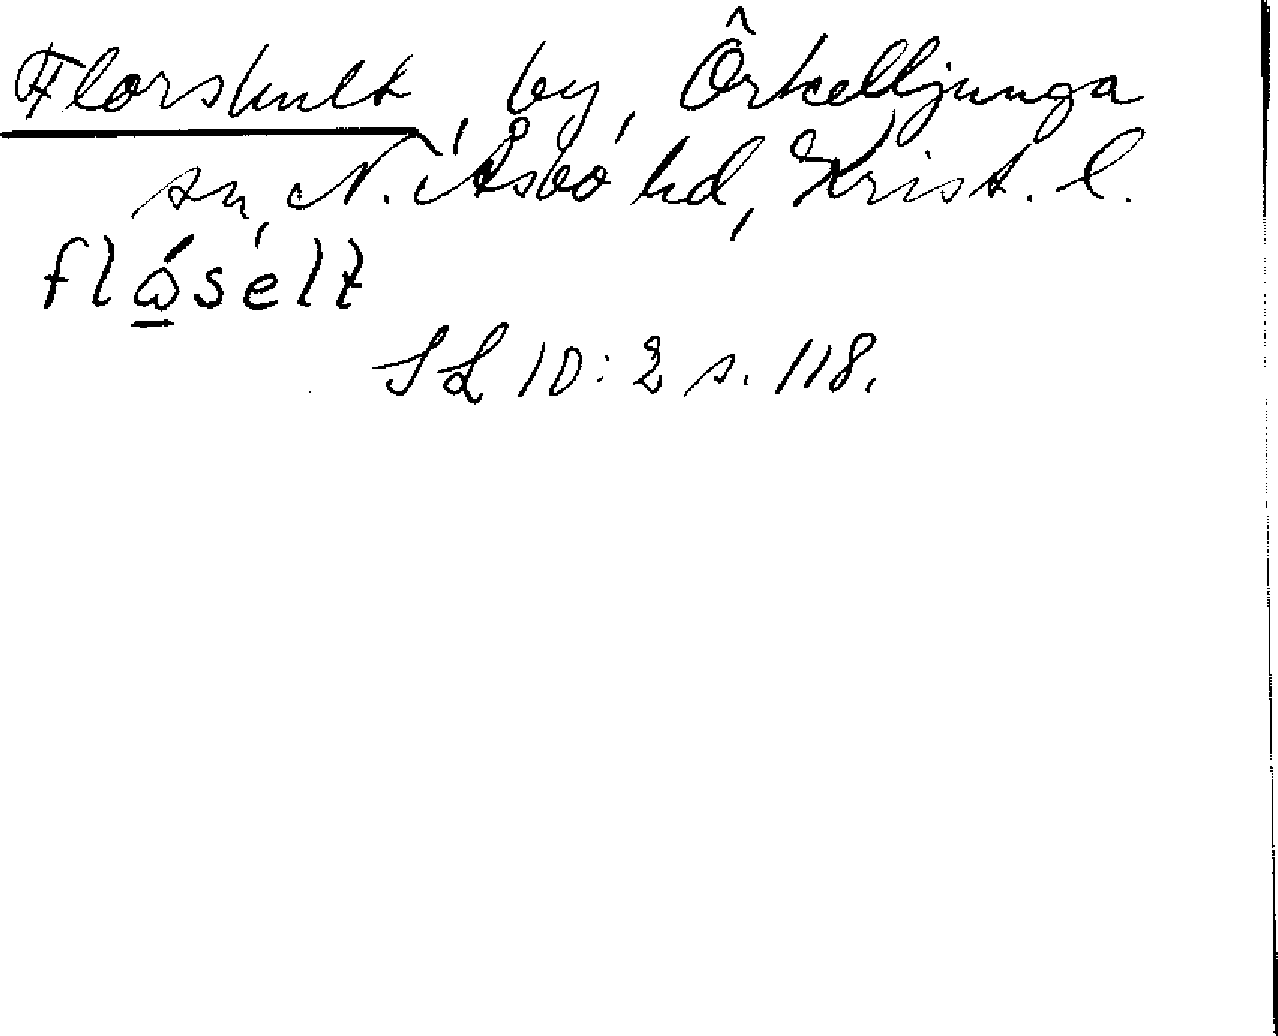 Florshult, by, Örkelljunga
sn, N. Åsbo hd, Krist. l.
flåselt
SL 10:2 s. 118.